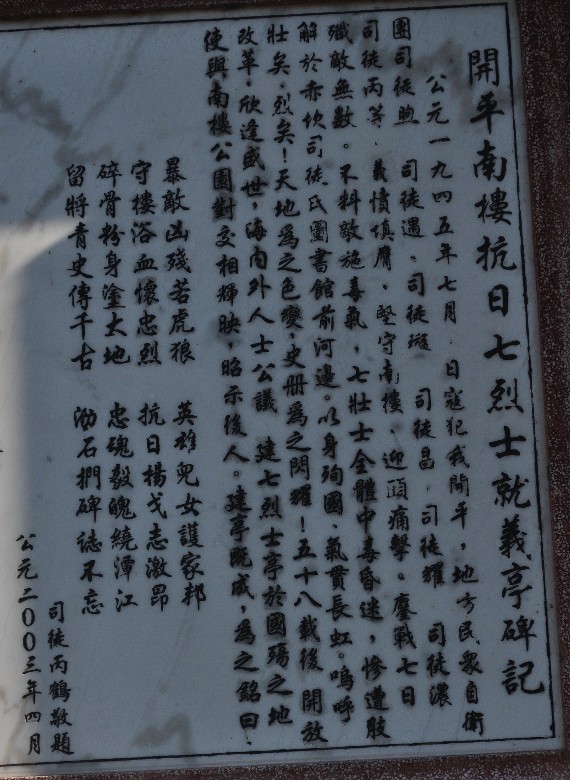 開平南樓抗日七烈士就義亭碑記
公元一九四五年七月，日寇犯我開平，地方民衆自衛
團司徒煦、司徒遇、司徒璇、司徒昌、司徒耀、司徒濃、
司徒丙等，義憤填膺，堅守南樓，迎頭痛擊。鏖戰七日，
殲敵無數。不料敵施毒氣，七壯士全體中毒昏迷，慘遭肢
解於赤坎司徒氏圖書館前河邊。以身殉國，氣貫長虹。嗚呼
壯矣，烈矣！天地爲之色變，史册爲之閃耀！五十八載後，開放
改革，欣逢盛世，海内外人士公議，建七烈士亭於國殤之地，
使與南樓公園對交相輝映，昭示後人。建亭既成，爲之銘曰：
暴敵凶殘若虎狼 英雄兒女護家邦
守樓浴血懷忠烈 抗日楊戈志激昂
碎骨粉身塗大地 忠魂毅魄繞潭江
留將青史傳千古 泐石捫碑誌不忘
司徒丙鶴敬題
公元二00三年四月